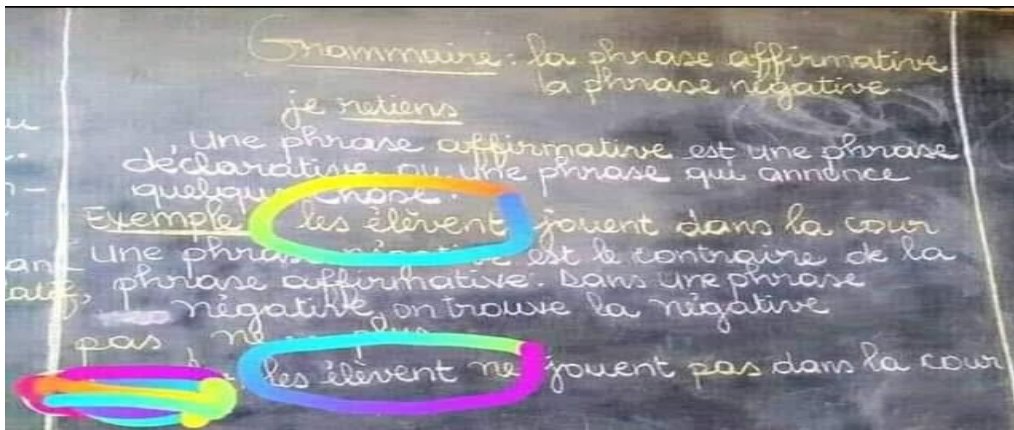 Grammaire : la phrase affirmative
la phrase négative.
je retiens
Une phrase affirmative est une phrase
déclarative ou une phrase qui annonce
quelque chose.
Exemple les élèvent jouent dans la cour
Une est le contraire de la
phrase affirmative. Dans une phrase
négative, on trouve la négative
pas ne plus
les élèvent ne jouent pas dans la cour